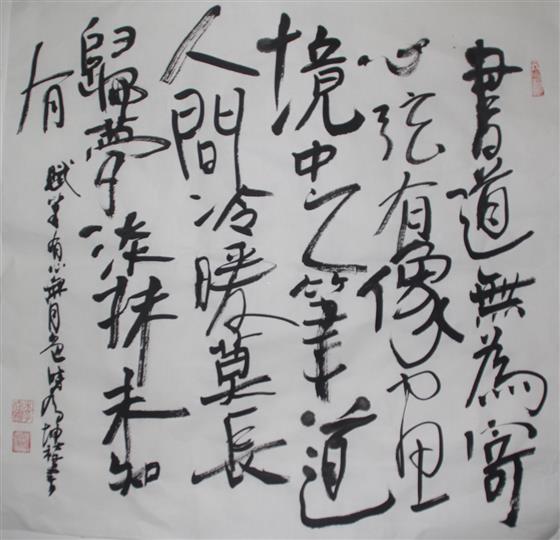 書道無為寄
心弦有像里
境中之筆道
人間冷暖莫長
歸夢淡抹未知
有
賦筆有心無月色